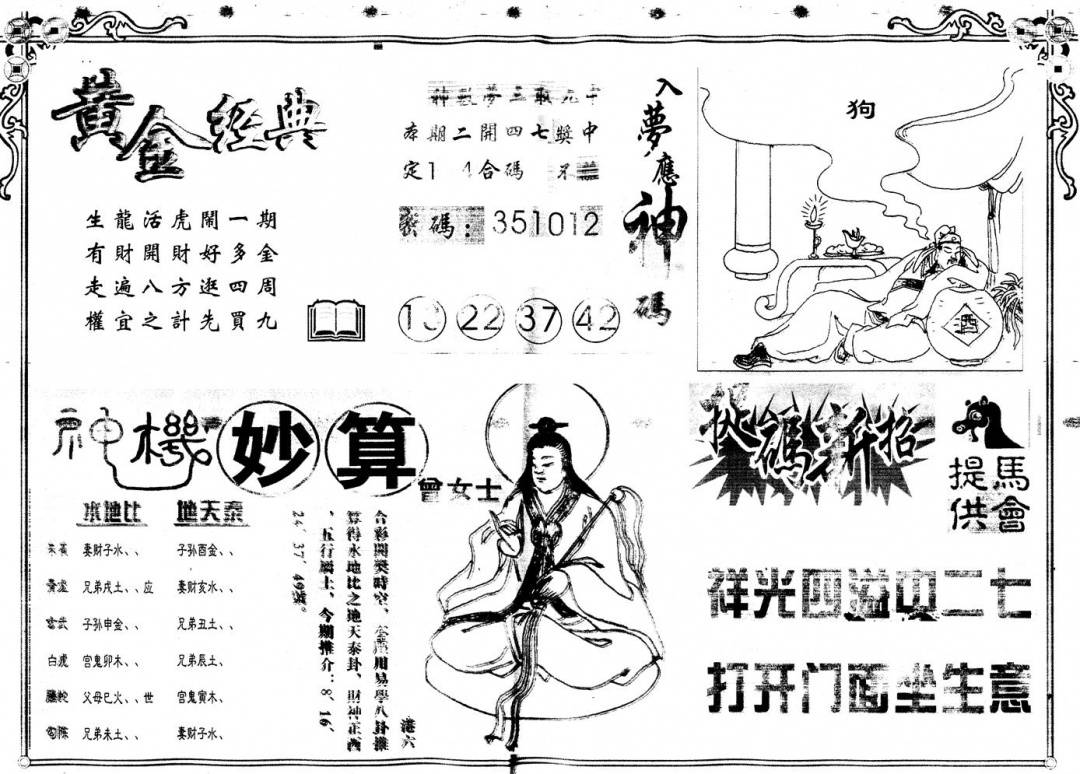 黃金經典
生龍活虎鬧一期
有財開財好多金
走遍八方逛四周
權宜之計先買九
神數夢三取九中
本期二開四七獎中
定1 4合碼
密碼：351012
13 22 37 42
入夢應神碼
狗
酒
神機妙算
曾女士
水地比 地天泰
朱雀 妻財子水、、 子孙酉金、、
青龍 兄弟戌土、、应 妻財亥水、、
玄武 子孙申金、、 兄弟丑土、、
白虎 官鬼卯木、、 兄弟辰土、
騰蛇 父母巳火、、世 官鬼寅木、
勾陈 兄弟未土、、 妻財子水、
港六
合彩開獎時空，運用易學八卦推
算得水地比之地天泰卦，財神正西
，五行屬土，今期推介：8、16、
24、37、49號。
伏碼新招
馬會
提供
祥光四溢中二七
打开门面坐生意